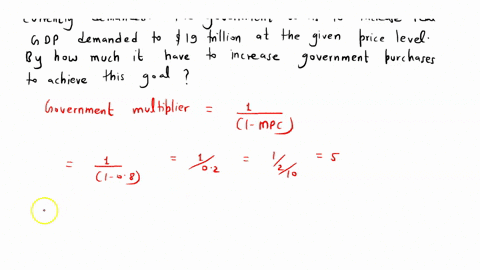 GDP demanded to $19 trillion at the given price level.
By how much it have to increase government purchases
to achieve this goal ?
Government multiplier = 1/(1-MPC)
= 1/(1-0.8) = 1/0.2 = 1/2/10 = 5